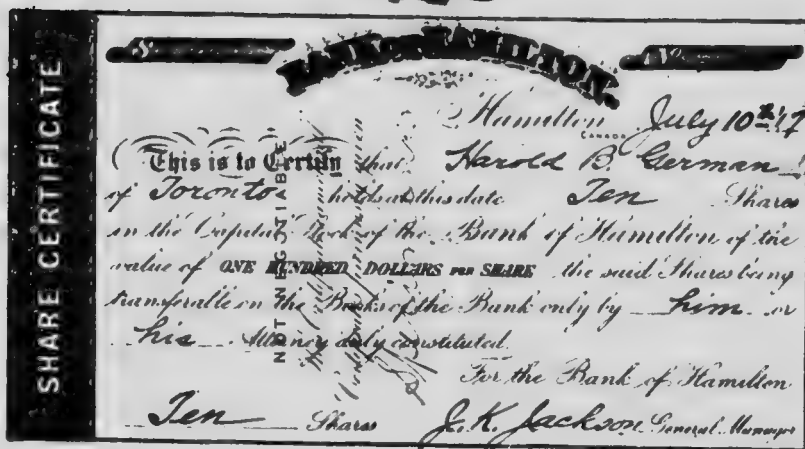 SHARE CERTIFICATE
BANK OF HAMILTON.
Hamilton CANADA July 10th 17
This is to Certify that Harold B. German
of Toronto holds at this date Ten Shares
in the Capital Stock of the Bank of Hamilton of the
value of ONE HUNDRED DOLLARS PER SHARE the said Shares being
transferable on the Books of the Bank only by him or
his Attorney duly constituted.
NOT NEGOTIABLE
For the Bank of Hamilton
Ten Shares J. K. Jackson General Manager